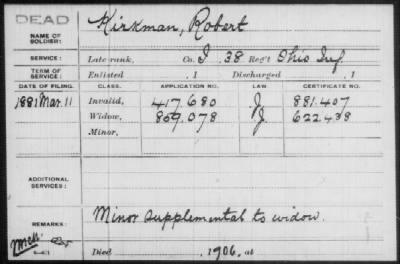 DEAD
Kirkman, Robert
NAME OF SOLDIER:
SERVICE: Late rank, Co. I, 38 Reg't Ohio Inf.
TERM OF SERVICE: Enlisted , 1 Discharged , 1
DATE OF FILING. CLASS. APPLICATION NO. LAW. CERTIFICATE NO.
1881 Mar. 11 Invalid, 417.680 J. 881.407
Widow, 859.078 J. 622438
Minor,
ADDITIONAL SERVICES:
REMARKS: Minor supplemental to widow.
Died , 1906, at